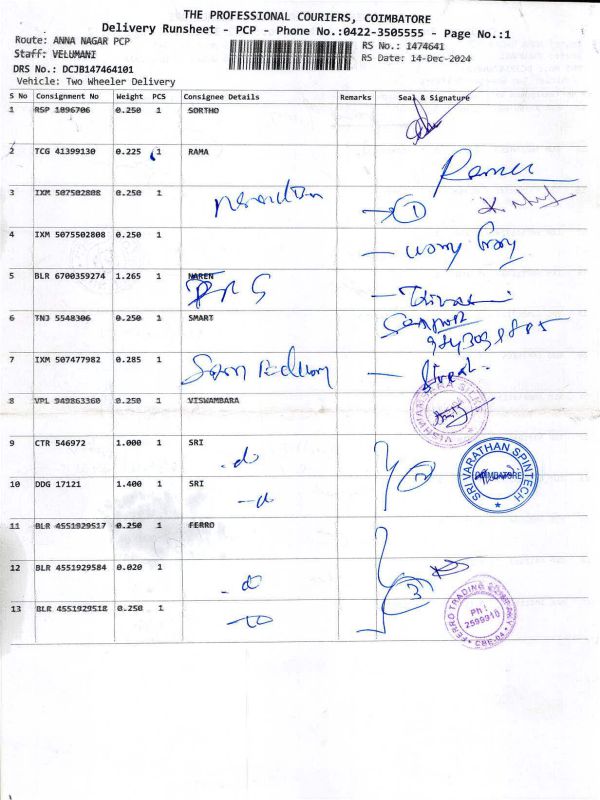 THE PROFESSIONAL COURIERS, COIMBATORE
Delivery Runsheet - PCP - Phone No.:0422-3505555 - Page No.:1
Route: ANNA NAGAR PCP
RS No.: 1474641
Staff: VELUMANI
RS Date: 14-Dec-2024
DRS No.: DCJB147464101
Vehicle: Two Wheeler Delivery
S No Consignment No Weight PCS Consignee Details Remarks Seal & Signature
1 RSP 1896706 0.250 1 SORTHO
2 TCG 41399130 0.225 1 RAMA
3 IXM 507502808 0.250 1
4 IXM 5075502808 0.250 1
5 BLR 6700359274 1.265 1 NAREN
6 TNJ 5548306 0.250 1 SMART
7 IXM 507477982 0.285 1
8 VPL 949863360 0.250 1 VISWAMBARA
9 CTR 546972 1.000 1 SRI
SRI VARATHAN SPINTECH
COIMBATORE
10 DDG 17121 1.400 1 SRI
11 BLR 4551929517 0.250 1 FERRO
12 BLR 4551929584 0.020 1
3
13 BLR 4551929518 0.250 1
FERRO TRADING COMPANY
Ph:
2599910
CBE-04